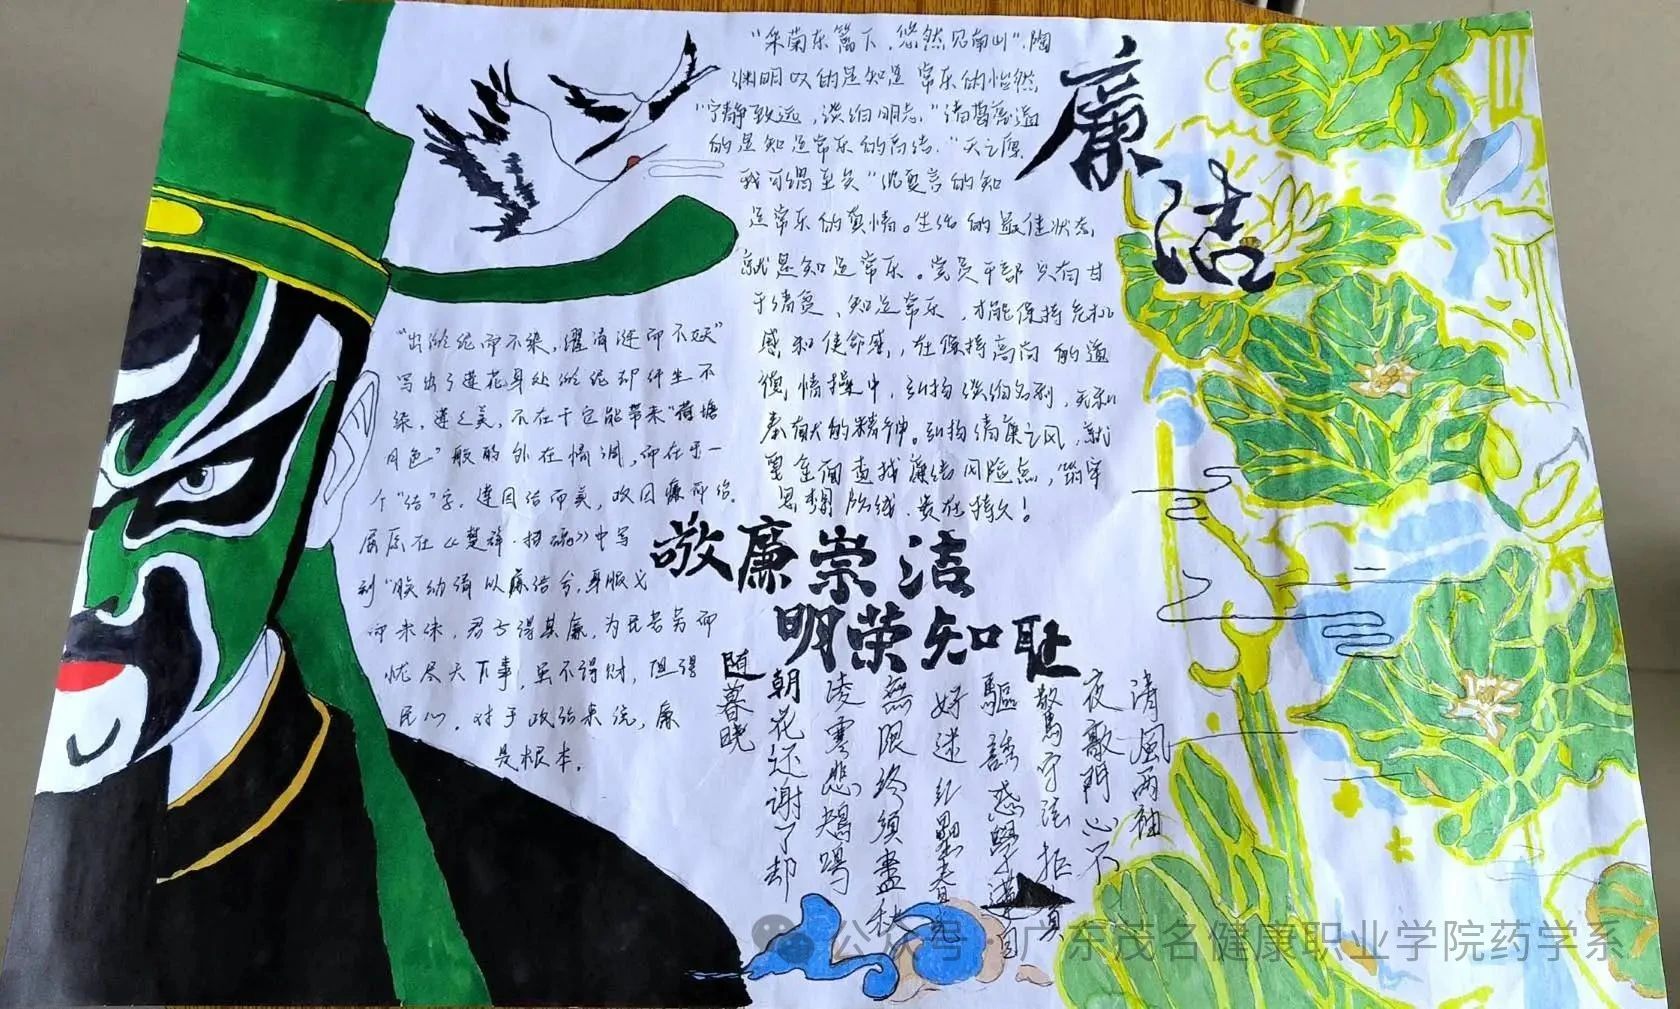 廉洁
"采菊东篱下，悠然见南山"，陶
渊明叹的是知足常乐的怡然，
"宁静致远，淡泊明志，"诸葛亮道
的是知足常乐的高洁，"天之厚
我可谓至矣"沈复言的知
足常乐的真情。生活的最佳状态，
就是知足常乐。党员干部只有甘
于清贫、知足常乐，才能保持危机
感和使命感，在保持高尚的道
德情操中，弘扬淡泊名利，无私
奉献的精神。弘扬清廉之风，就
要全面查找廉洁风险点，筑牢
思想防线，贵在持久！
"出淤泥而不染，濯清涟而不妖"
写出了莲花身处淤泥却纤尘不
染，莲之美，不在于它能带来"荷塘
月色"般的外在情调，而在乎一
个"洁"字。莲因洁而美，政因廉而洁。
屈原在《楚辞·招魂》中写
到"朕幼清以廉洁兮，身服义
而未沬，君子得其廉，为民苦劳而
忧尽天下事，虽不得财，但得
民心，对于政治来说，廉
是根本。
敬廉崇洁
明荣知耻
清风两袖
夜敲门心不
驚守法拒
驅誘惑學蓮
好迷紅
無限终须盡秋
凌寒悲鴂鳴
朝花还谢了却
随暮晓
公众号·广东茂名健康职业学院药学系